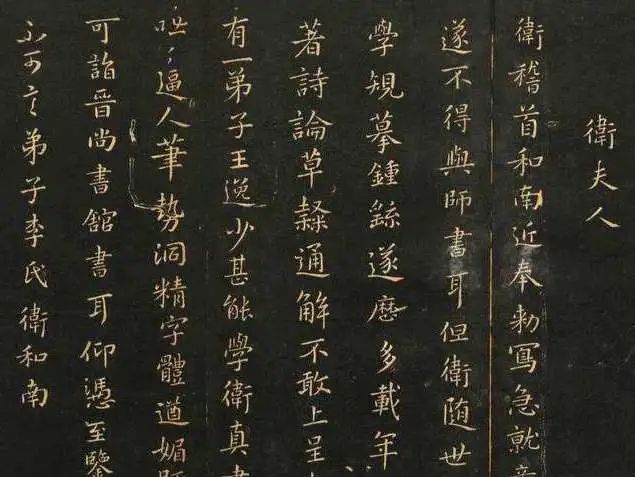 衛夫人
衛稽首和南近奉勅寫急就章
遂不得與師書耳但衛随世
學䂓摹鍾繇遂歷多載年
著詩論草隸通解不敢上呈
有一弟子王逸少甚能學衛真書
咄〻逼人筆勢洞精字體遒媚
可詣晉尚書館書耳仰憑至鑒
不可言弟子李氏衛和南